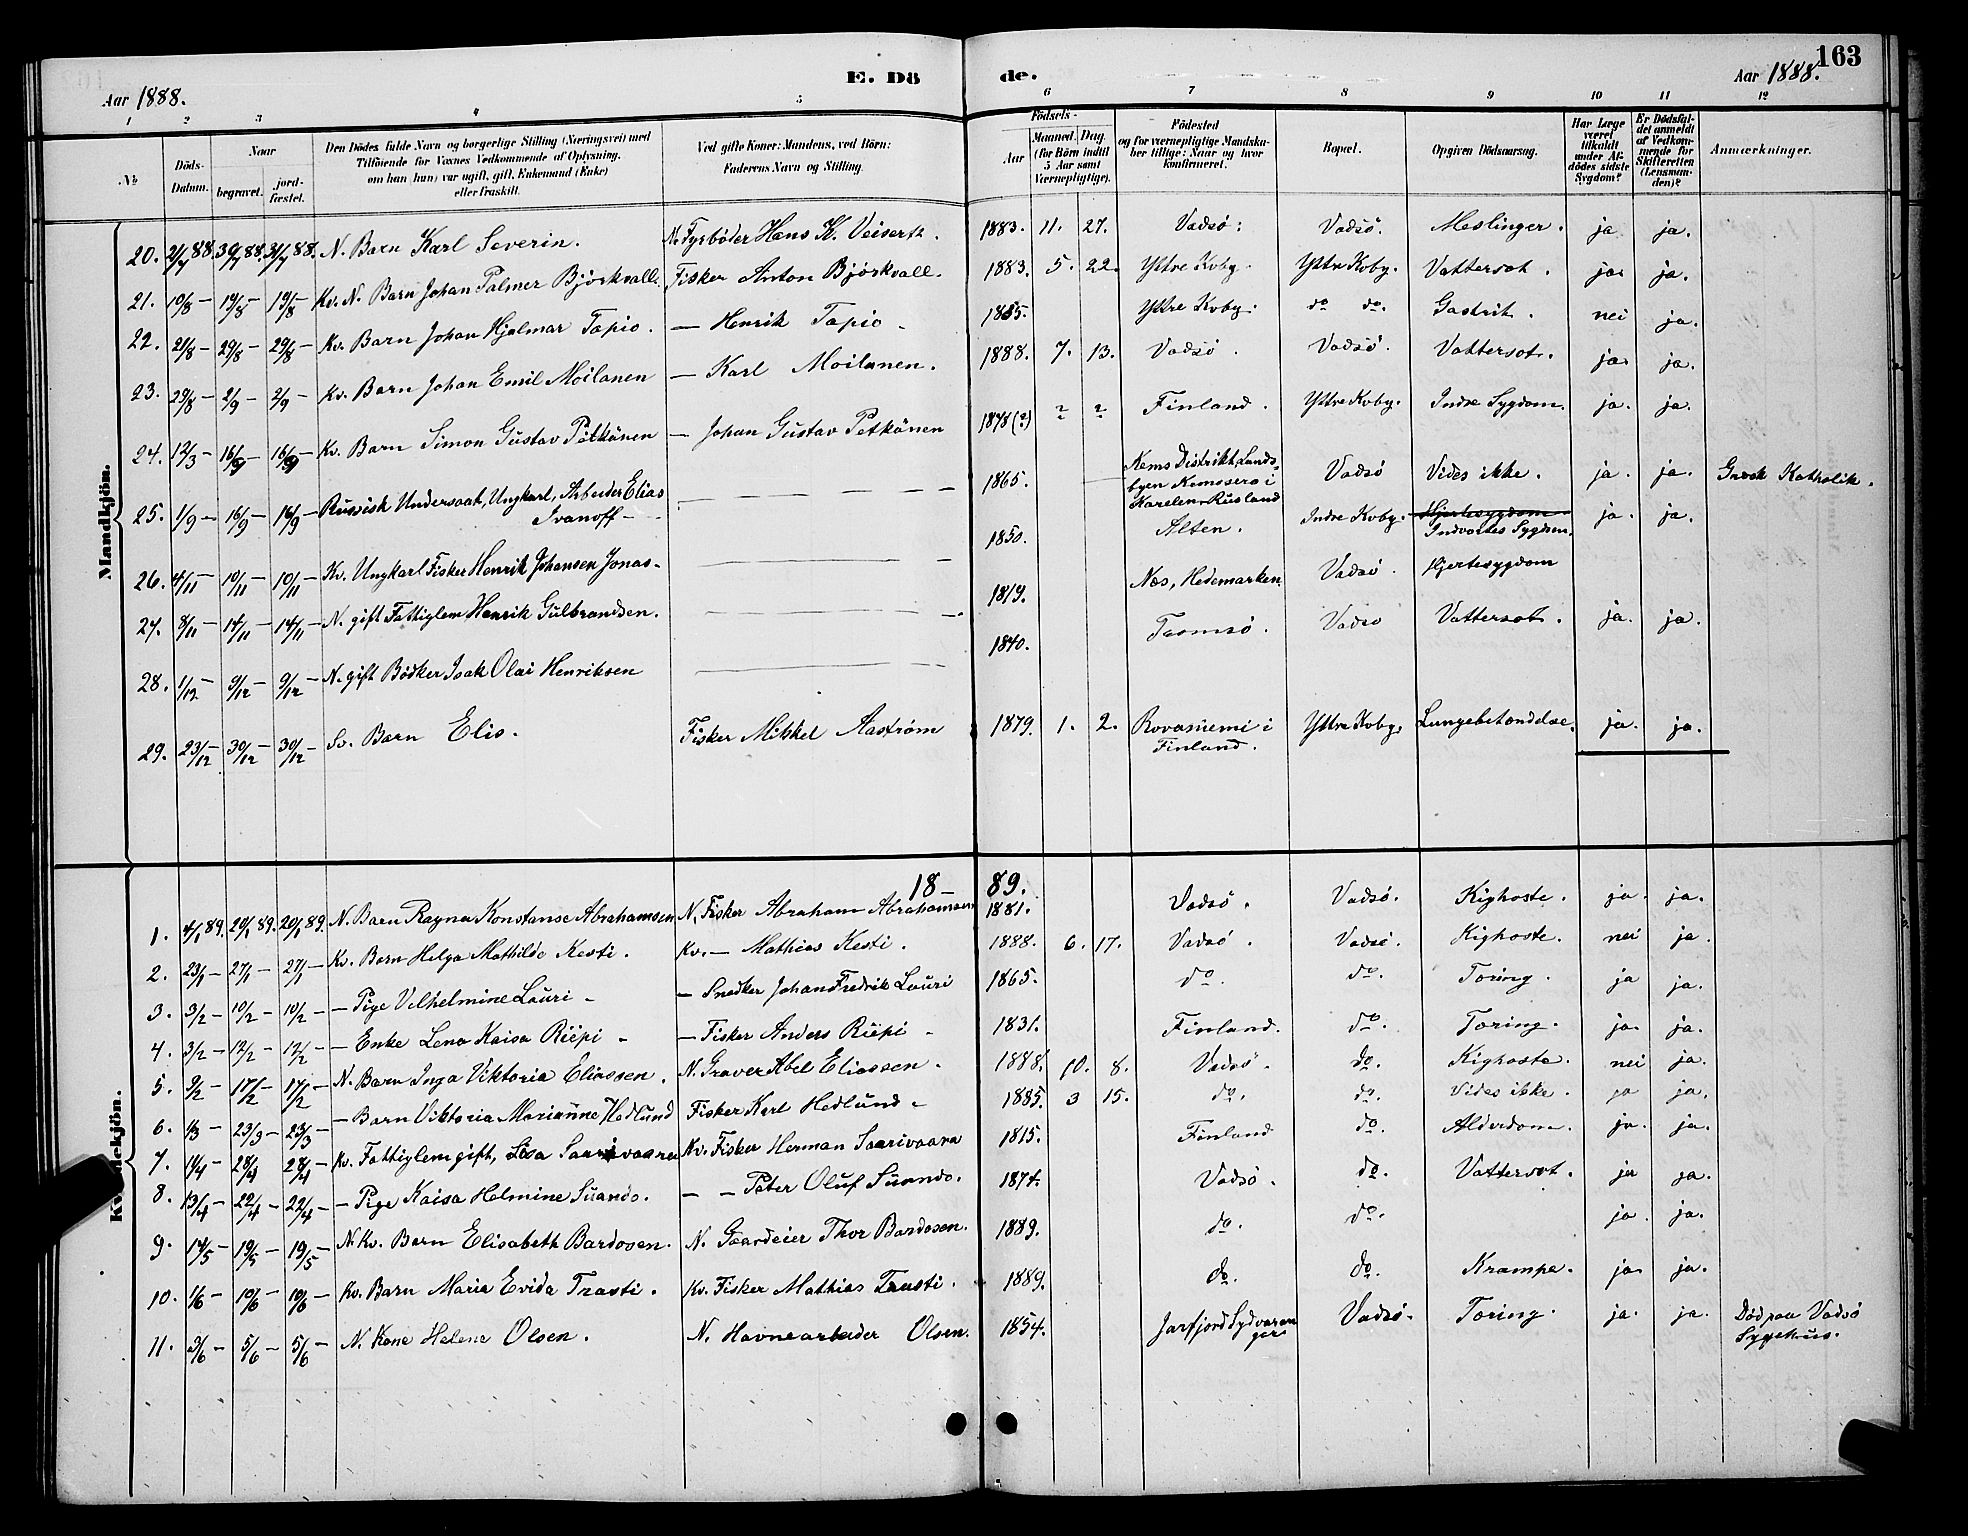 163
E. Dö de.
Aar 1888. Aar 1888.
1 2 3 4 5 6 7 8 9 10 11 12
No
Döds-Datum.
Naar
begravet.
jord-fæstet.
Den Dödes fulde Navn og borgerlige Stilling (Næringsvei) med
Tilföiende for Voxnes Vedkommende af Oplysning,
om han (hun) var ugift, gift, Enkemand (Enke)
eller fraskilt.
Ved gifte Koner: Mandens, ved Börn:
Faderens Navn og Stilling.
Födsels-
Aar
Maaned. Dag.
(for Börn indtil
5 Aar samt
Værnepligtige).
Födested
og for værnepligtige Mandska-
ber tillige: Naar og hvor
konfirmeret.
Bopæl.
Opgiven Dödsaarsag.
Har Læge
været
tilkaldt
under Af-
dödes sidste
Sygdom?
Er Dödsfal-
det anmeldt
af Vedkom-
mende for
Skifteretten
(Lensman-
den)?
Anmærkninger.
Mandkjön.
20. 21/7 88. 30/7 88. 31/7 88. N. Barn Karl Severin. N. Fyrbøder Hans K. Veisert. 1883. 11. 27. Vadsø. Vadsö. Meslinger. ja ja.
21. 10/8 – 19/8 – 19/8 – Kv. N. Barn Johan Palmer Björkvall. Fisker Anton Björkvall. 1883. 5. 22. Yttre Kvby. Yttre Kvby. Vattersot. ja ja.
22. 21/8 – 29/8 – 29/8 – Kv. Barn Johan Hjalmar Tapio. — Henrik Tapio – 1885. Yttre Kvby. do do. Gastrit. nei ja.
23. 29/8 – 2/9 – 2/9 – Kv. Barn Johan Emil Moilanen — Karl Moilanen. 1888. 7. 13. Vadsö. Vadsö. Vattersot. ja ja.
24. 12/3 – 16/9 – 16/9 – Kv. Barn Simon Gustav Pätkänen — Johan Gustav Petkänen 1878(?) ? ? Finland. Yttre Kvby. Indre Sygdom. ja. ja.
25. 1/9 – 16/9 – 16/9 – Russisk Undersaat, Ungkarl, Arbeider Elias
Ivanoff – – – – – – 1865. Kems Distrikt, Lands-
byen Kemssero i
Karelen Rusland Vadsö Vides ikke. ja. ja. Græsk Katholik.
26. 4/11 – 10/11 – 10/11 – Kv. Ungkarl Fisker Henrik Johansen Jonas – 1850. Alten. Indre Kvby. Hjertesygdom
Indvortes Sygdom. ja. ja.
27. 8/11 – 14/11 – 14/11 – N. gift Fattiglem Henrik Gulbrandsen. 1819. Næs, Hedemarken. Vadsö. Hjertesygdom
28. 1/12 – 9/12 – 9/12 – N. gift Bödker Isak Olai Henriksen 1840. Tromsö. Vadsö Vattersot. ja. ja.
29. 23/12 – 30/12 – 30/12 – Sv. Barn Elis. Fisker Mikkel Aaström 1879. 1. 2. Rovaniemi i
Finland. Yttre Kvby. Lungebetændelse. ja. ja.
Kvindekjön.
18–89.
1. 4/1 89. 20/1 89. 20/1 89. N. Barn Ragna Konstanse Abrahamsen N. Fisker Abraham Abrahamsen 1881. Vadsö. Vadsö. Kighoste. ja. ja.
2. 23/1 – 27/1 – 27/1 – Kv. Barn Helga Mathilde Kesti. Kv. – Mathias Kesti. 1888. 6. 17. Vadsö. Vadsö. Kighoste. nei ja.
3. 3/2 – 10/2 – 10/2 – – Pige Vilhelmine Lauri – – Snedker Johan Fredrik Lauri 1865. do. do. Tæring. ja ja.
4. 3/2 – 12/2 – 12/2 – – Enke Lena Kaisa Riepi – – Fisker Anders Riepi – 1831. Finland. do. Tæring. ja. ja.
5. 9/2 – 17/2 – 17/2 – N. Barn Inga Viktoria Eliassen. N. Graver Abel Eliassen. 1888. 10. 8. Vadsö. do. Kighoste. nei ja.
6. 1/3 – 23/3 – 23/3 – – Barn Viktoria Marianne Hedlund Fisker Karl Hedlund – 1885. 3 15. do. do. Vides ikke. ja ja.
7. 14/4 – 28/4 – 28/4 – Kv. Fattiglem gift, Lisa Saarivaara Kv. Fisker Herman Saarivaara 1815. Finland do. Alderdom. ja. ja.
8. 13/4 – 22/4 – 22/4 – – Pige Kaisa Helmine Suando. – – Peter Oluf Suando. 1874. Vadsö. do. Vattersot. ja ja.
9. 14/5 – 19/5 – 19/5 – N. Kv. Barn Elisabeth Bardosen. N. Gaardeier Thor Bardosen. 1889. do. do. ja. ja.
10. 1/6 – 10/6 – 10/6 – Kv. Barn Maria Evida Trasti. Kv. Fisker Mathias Trasti. 1889. do. do. Krampe. ja. ja.
11. 3/6 – 5/6 – 5/6 – N. Kone Helene Olsen. N. Havnearbeider Olsen. 1854. Jarfjord Sydvaran
ger Vadsö. Tæring. ja. ja. Död paa Vadsö
Sygehus.